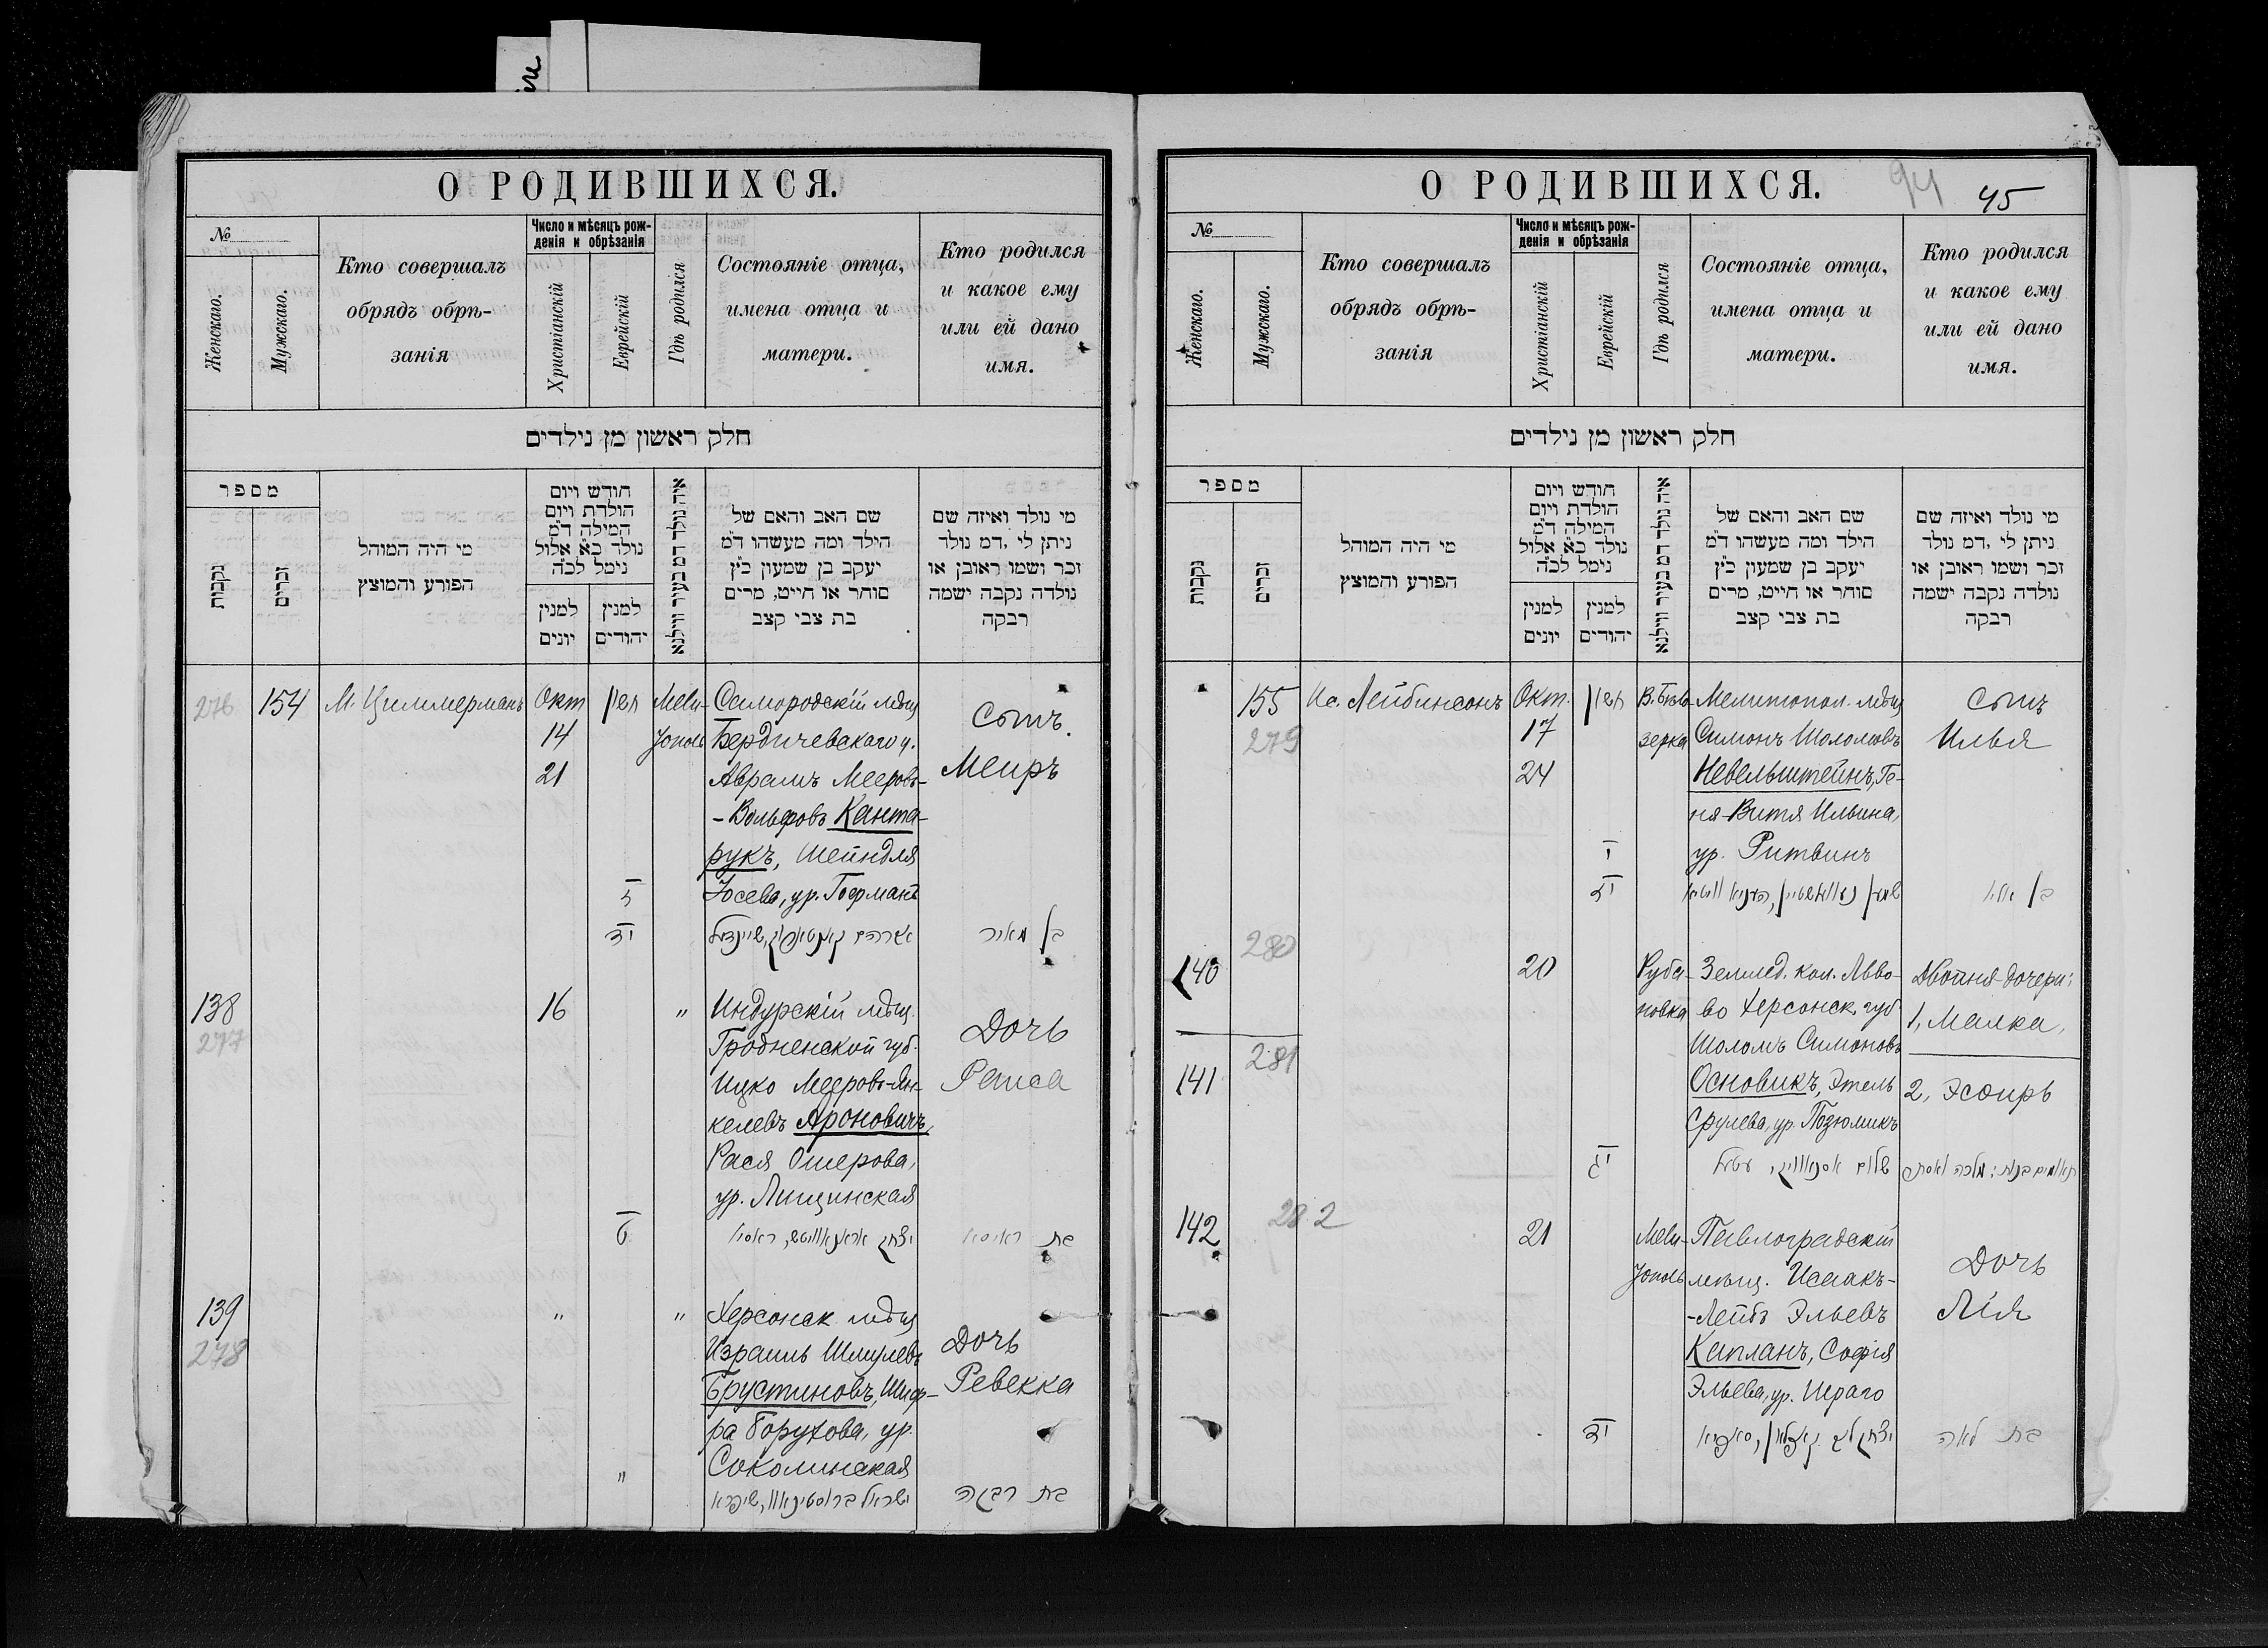 О РОДИВШИХСЯ.
№
Женскаго.
Мужскаго.
Кто совершалъ
обрядъ обрѣ-
занія
Число и мѣсяцъ рож-
денія и обрѣзанія
Христіанскій
Еврейскій
Гдѣ родился
Состояніе отца,
имена отца и
матери.
Кто родился
и какое ему
или ей дано
имя.
חלק ראשון מן נילדים
מספר
נקבות
זכרים
מי היה המוהל
הפורע והמוצץ
חודש ויום
הולדת ויום
המילה ד״מ
נולד כ״א אלול
נימל לכ״ה
למנין
יונים
למנין
יהודים
איה נולד דמ בעיר ווילנא
שם האב והאם של
הילד ומה מעשהו ד״מ
יעקב בן שמעון כ״ץ
סוחר או חייט, מרים
בת צבי קצב
מי נולד ואיזה שם
ניתן לי, דמ נולד
זכר ושמו ראובן או
נולדה נקבה ישמה
רבקה
276
154
М. Циммерманъ
Окт
14
21
חשון
ז
יד
Мели-
тополь
Самородскій мѣщ
Бердичевскаго у.
Аврамъ Мееровъ-
-Вольфовъ Канта-
рукъ, Шейндля
Юсева, ур. Гофманъ
אברהם קאנטארוק, שיינדל
Сынъ.
Меиръ
בן מאיר
138
277
16
ט
"
Индурскій мѣщ.
Гродненской губ.
Ицко Мееровъ-Ян-
келевъ Ароновичъ,
Рася Ошерова,
ур. Лищинская
יצחק אראנאוויטש, ראסיא
Дочь
Раиса
בת ראיסא
139
278
"
"
"
Херсонск мѣщ
Израиль Шмулевъ
Брустиновъ, Шиф-
ра Борухова, ур.
Соколинская
ישראל ברוסטינאוו, שיפרא
Дочь
Ревекка
בת רבקה
О РОДИВШИХСЯ.
94
45
№
Женскаго.
Мужскаго.
Кто совершалъ
обрядъ обрѣ-
занія
Число и мѣсяцъ рож-
денія и обрѣзанія
Христіанскій
Еврейскій
Гдѣ родился
Состояніе отца,
имена отца и
матери.
Кто родился
и какое ему
или ей дано
имя.
חלק ראשון מן נילדים
מספר
נקבות
זכרים
מי היה המוהל
הפורע והמוצץ
חודש ויום
הולדת ויום
המילה ד״מ
נולד כ״א אלול
נימל לכ״ה
למנין
יונים
למנין
יהודים
איה נולד דמ בעיר ווילנא
שם האב והאם של
הילד ומה מעשהו ד״מ
יעקב בן שמעון כ״ץ
סוחר או חייט, מרים
בת צבי קצב
מי נולד ואיזה שם
ניתן לי, דמ נולד
זכר ושמו ראובן או
נולדה נקבה ישמה
רבקה
155
279
Ис. Лейбинсонъ
Окт.
17
24
חשון
י
יז
В. Бѣло-
зерка
Мелитопол. мѣщ
Симонъ Шоломовъ
Невельштейнъ, Ге-
ня-Витя Ильина,
ур. Ритвинъ
Сынъ
Илья
בן אליי
140
280
20
יג
Руба-
новка
Землед. кол. Льво-
во Херсонск. губ.
Шоломъ Симоновъ
Основикъ, Этель
Срулева, ур. Позюмикъ
שלום אסנאוויק, עטיל
Двойня-дочери:
1, Малка,
141
281
2, Эсфирь
תאומים בנות: מלכה ואסתר
142
282
21
יד
Мели-
тополь
Павлоградскій
мѣщ. Исаакъ-
-Лейбъ Эльевъ
Капланъ, Софія
Эльева, ур. Шраго
יצחק לייב קאפלאן, סאפיא
Дочь
Лія
בת לאה